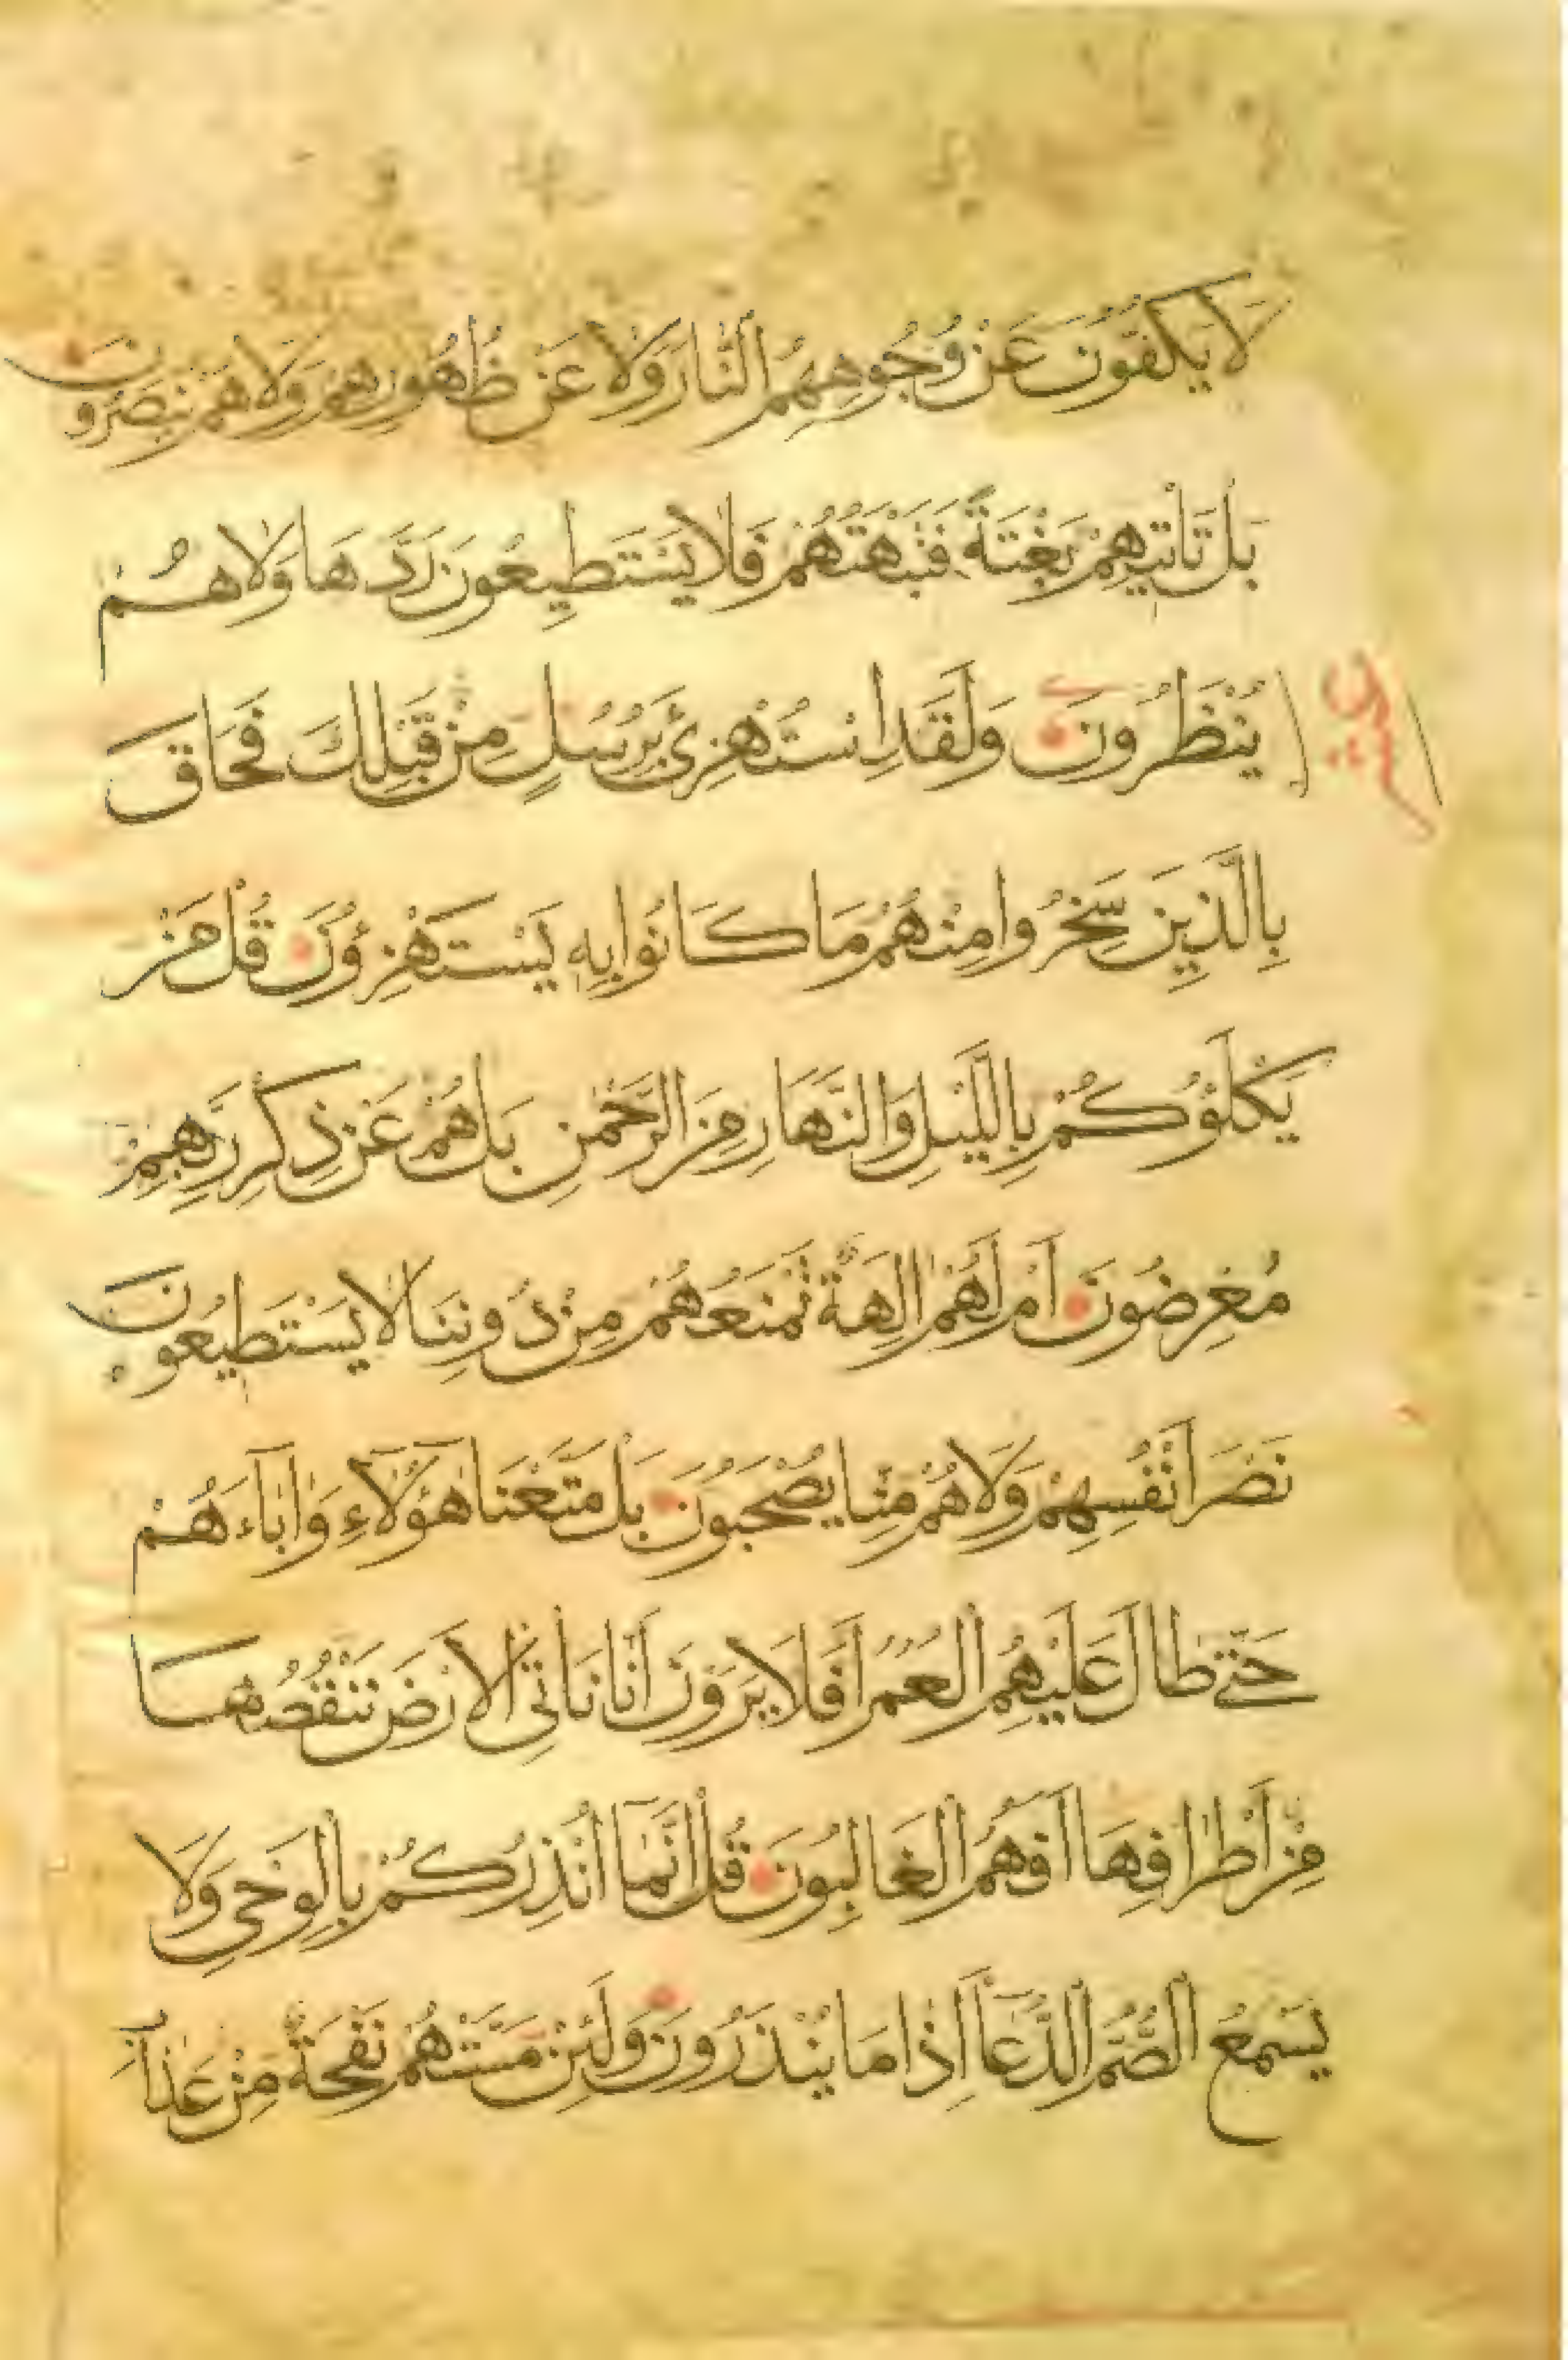 لَا يَكُفُّونَ عَنْ وُجُوهِهِمُ النَّارَ وَلَا عَنْ ظُهُورِهِمْ وَلَا هُمْ يُنْصَرُونَ
بَلْ تَأْتِيهِمْ بَغْتَةً فَتَبْهَتُهُمْ فَلَا يَسْتَطِيعُونَ رَدَّهَا وَلَا هُمْ
يُنْظَرُونَ وَلَقَدِ اسْتُهْزِئَ بِرُسُلٍ مِنْ قَبْلِكَ فَحَاقَ
بِالَّذِينَ سَخِرُوا مِنْهُمْ مَا كَانُوا بِهِ يَسْتَهْزِؤُنَ قُلْ مَنْ
يَكْلَؤُكُمْ بِاللَّيْلِ وَالنَّهَارِ مِنَ الرَّحْمٰنِ بَلْ هُمْ عَنْ ذِكْرِ رَبِّهِمْ
مُعْرِضُونَ اَمْ لَهُمْ اٰلِهَةٌ تَمْنَعُهُمْ مِنْ دُونِنَا لَا يَسْتَطِيعُونَ
نَصْرَ اَنْفُسِهِمْ وَلَا هُمْ مِنَّا يُصْحَبُونَ بَلْ مَتَّعْنَا هٰؤُلَآءِ وَاٰبَآءَهُمْ
حَتّٰى طَالَ عَلَيْهِمُ الْعُمُرُ اَفَلَا يَرَوْنَ اَنَّا نَاْتِى الْاَرْضَ نَنْقُصُهَا
مِنْ اَطْرَافِهَا اَفَهُمُ الْغَالِبُونَ قُلْ اِنَّمَآ اُنْذِرُكُمْ بِالْوَحْيِ وَلَا
يَسْمَعُ الصُّمُّ الدُّعَآ اِذَا مَا يُنْذَرُونَ وَلَئِنْ مَسَّتْهُمْ نَفْحَةٌ مِنْ عَذَابِ